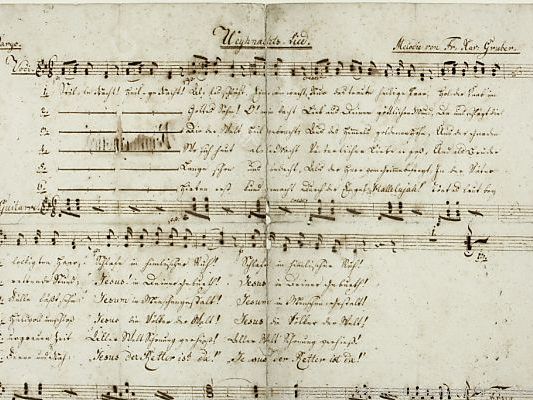 Weyhnachts-Lied.
Melodie von Fr. Xav. Gruber.
Voce
1 Stille Nacht! Heil'ge Nacht! Alles schläft. Einsam wacht Nur das traute heilige Paar. Holder Knab' im
2 Gottes Sohn! O! wie lacht Lieb' aus Deinem göttlichen Mund, Da uns schlägt die
3 Die der Welt Heil gebracht, Aus des Himmels goldnen Höhn, Uns der Gnaden
4 Wo sich heut alle Macht Väterlicher Liebe ergoß, Und als Bruder
5 Lange schon uns bedacht, Als der Herr vom Grimme befreyt In der Väter
6 Hirten erst kund gemacht Durch der Engel Hallelujah! Tönt es laut bey
Guitarre
lockigten Haar, Schlafe in himmlischer Ruh! Schlafe in himmlischer Ruh!
rettende Stund'. Jesus! in Deiner Geburt! Jesus in Deiner Geburt!
Fülle läßt sehn Jesum in Menschengestalt! Jesum in Menschengestalt!
huldvoll umschloß Jesus die Völker der Welt! Jesus die Völker der Welt!
urgrauer Zeit Aller Welt Schonung verhieß! Aller Welt Schonung verhieß!
Jesus der Retter ist da! Jesus der Retter ist da!